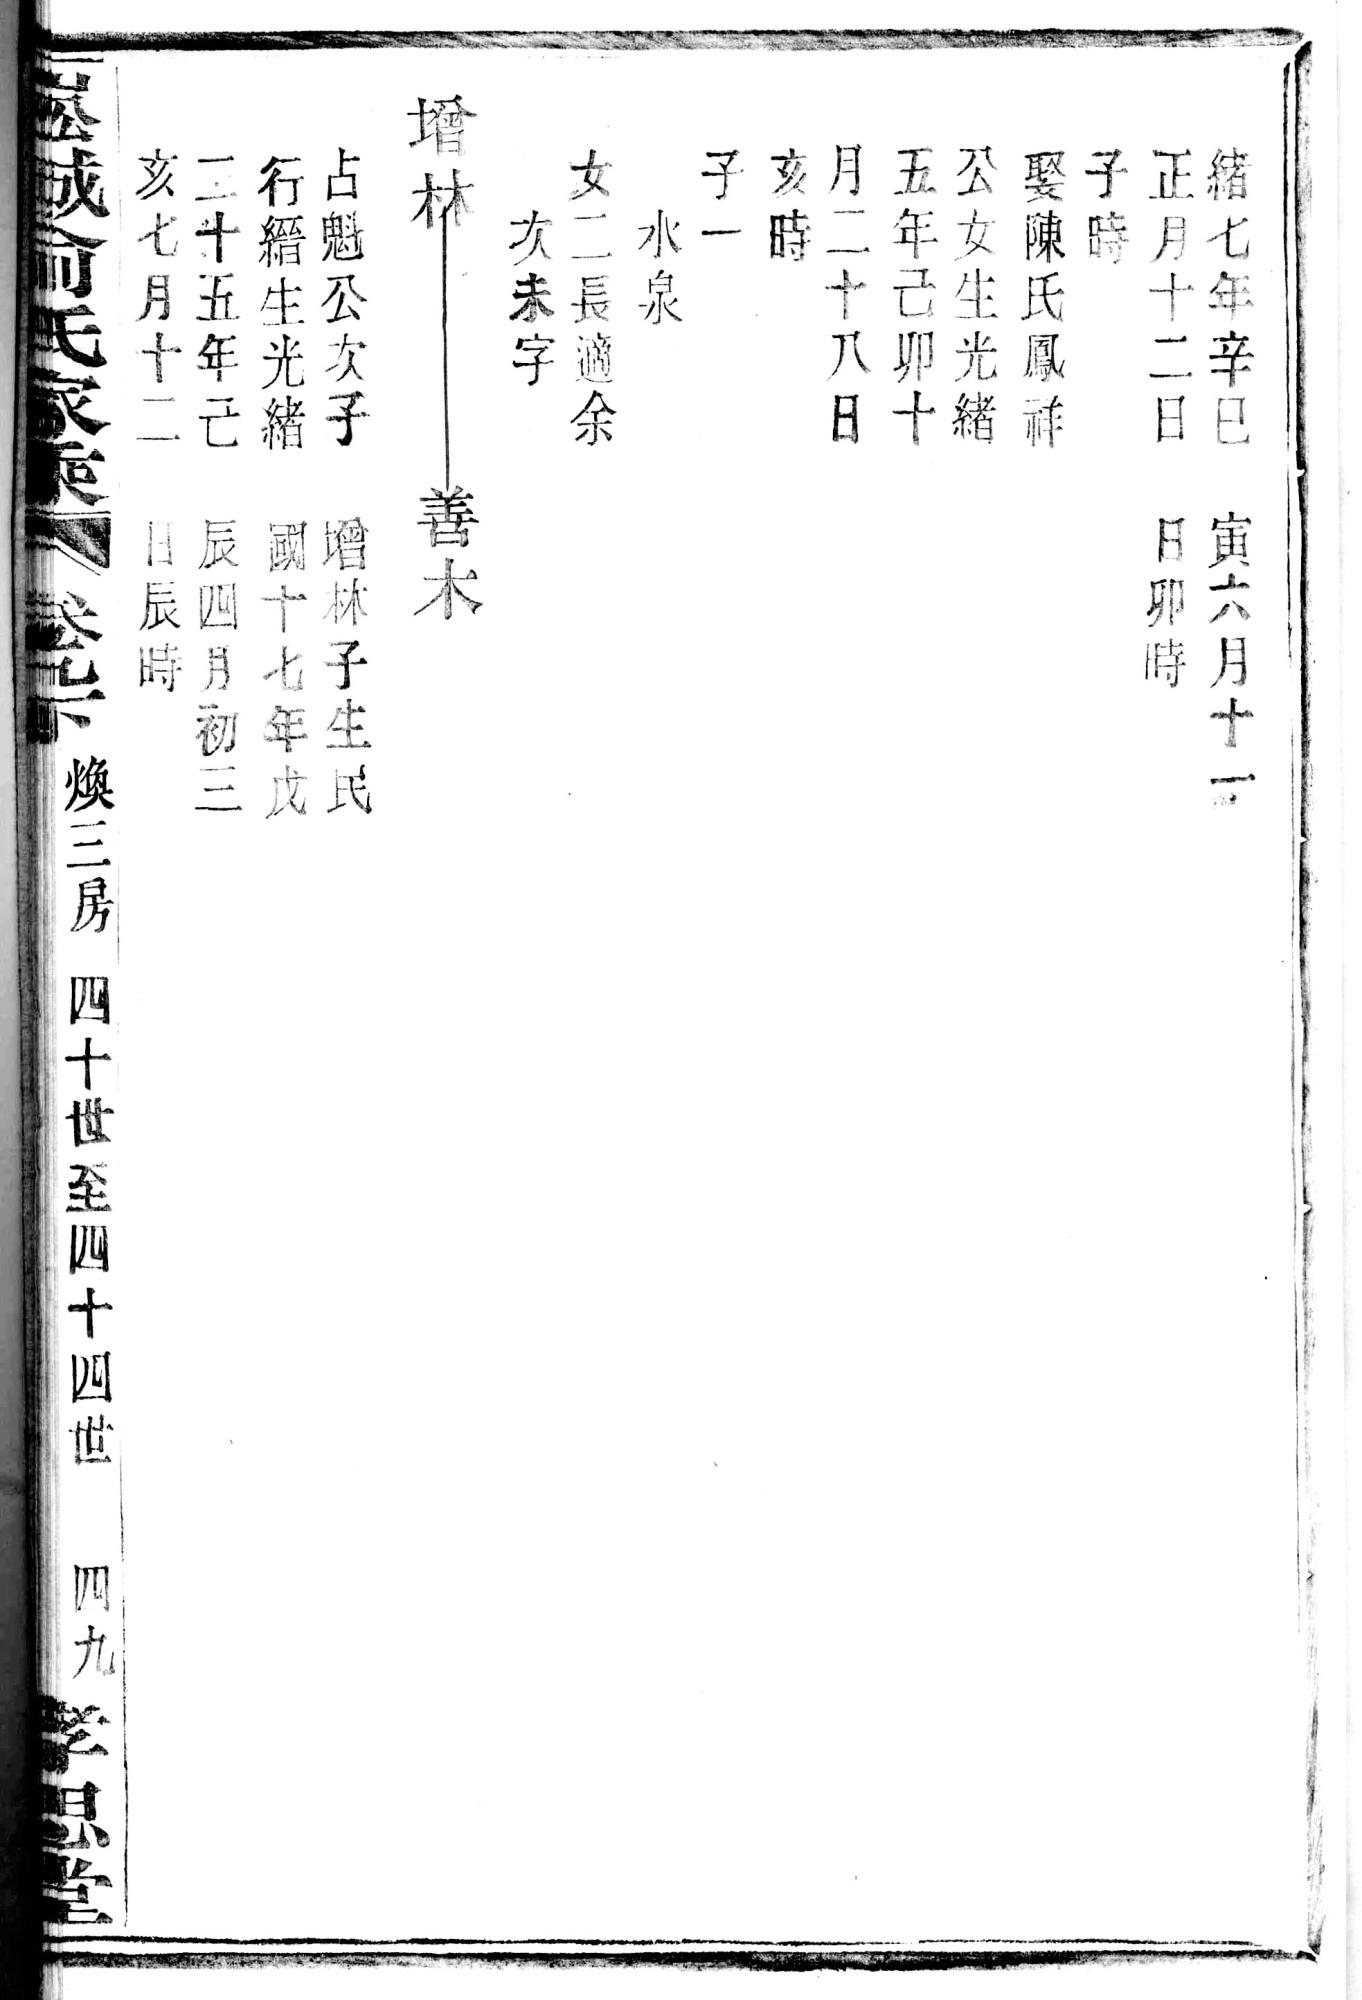 緒七年辛巳
正月十二日
子時
娶陳氏鳳祥
公女生光緒
五年己卯十
月二十八日
亥時
子一
水泉
女二長適余
次未字
寅六月十一
日卯時
增林
善木
占魁公次子
行縉生光緒
二十五年己
亥七月十二
增林子生民
國十七年戊
辰四月初三
日辰時
俞氏家乘
煥三房 四十世至四十四世 四九
孝思堂